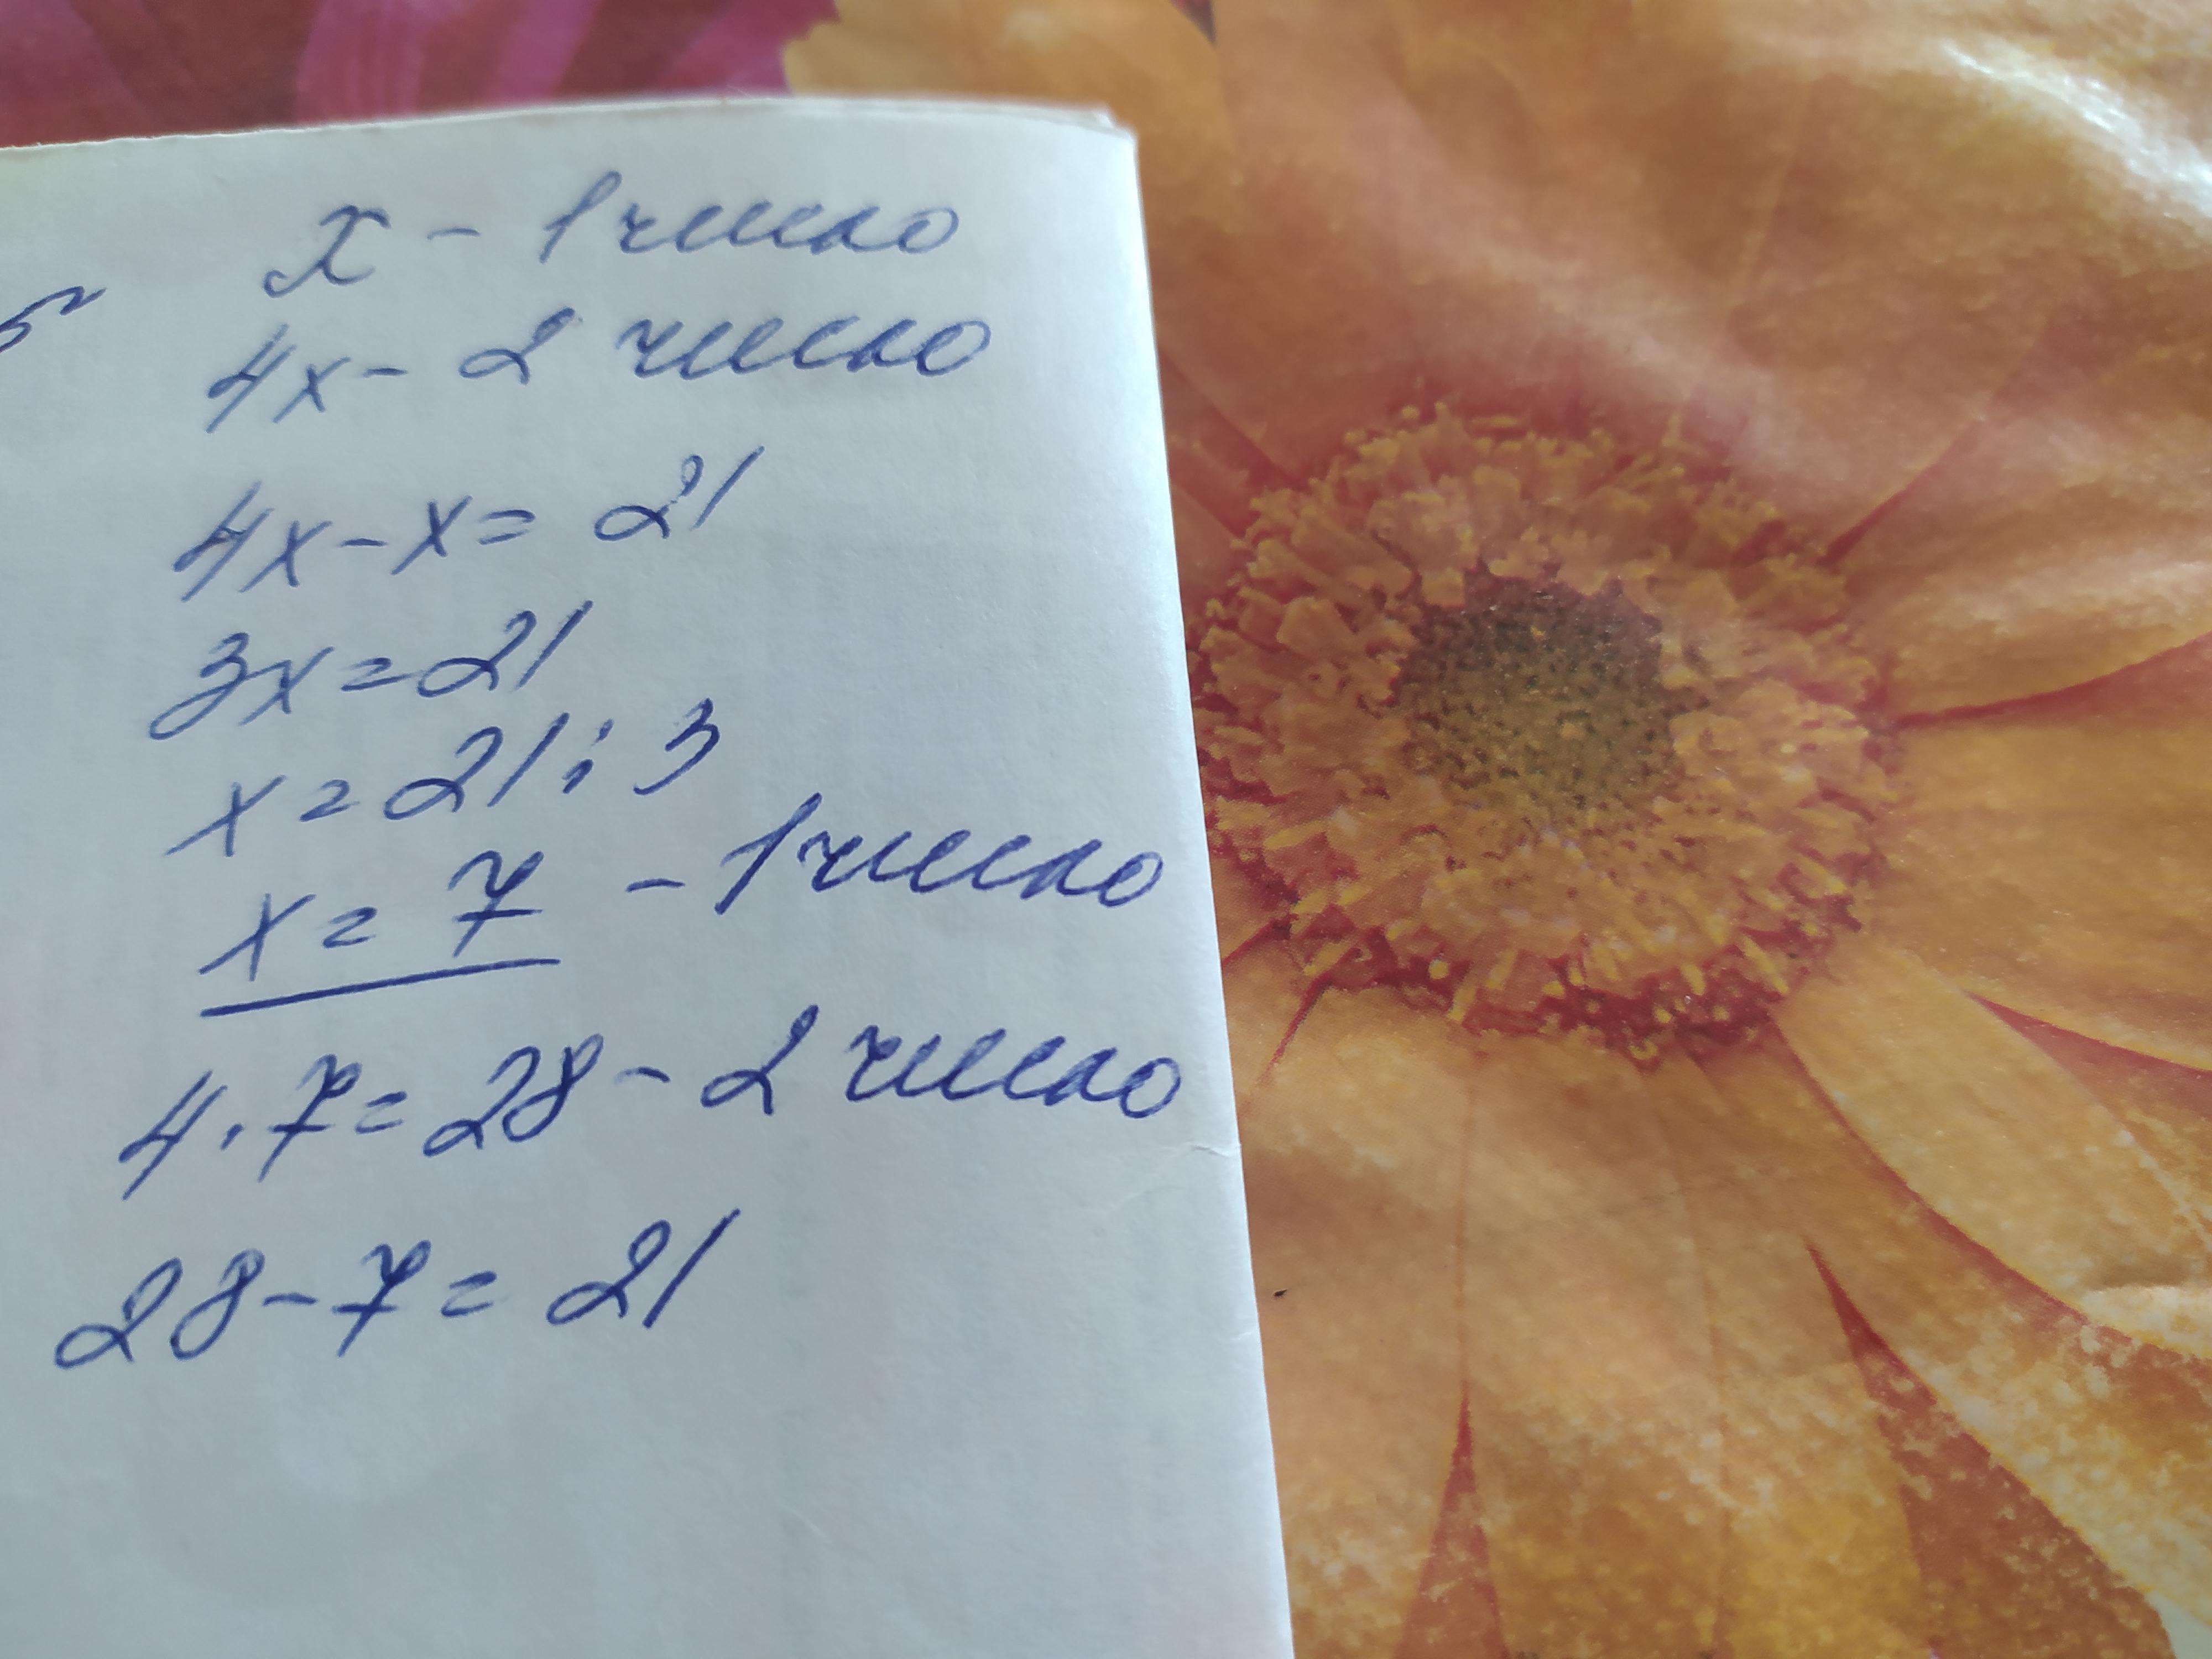 x - 1 число
4x - 2 число
4x - x = 21
3x = 21
x = 21 : 3
x = 7 - 1 число
4 · 7 = 28 - 2 число
28 - 7 = 21